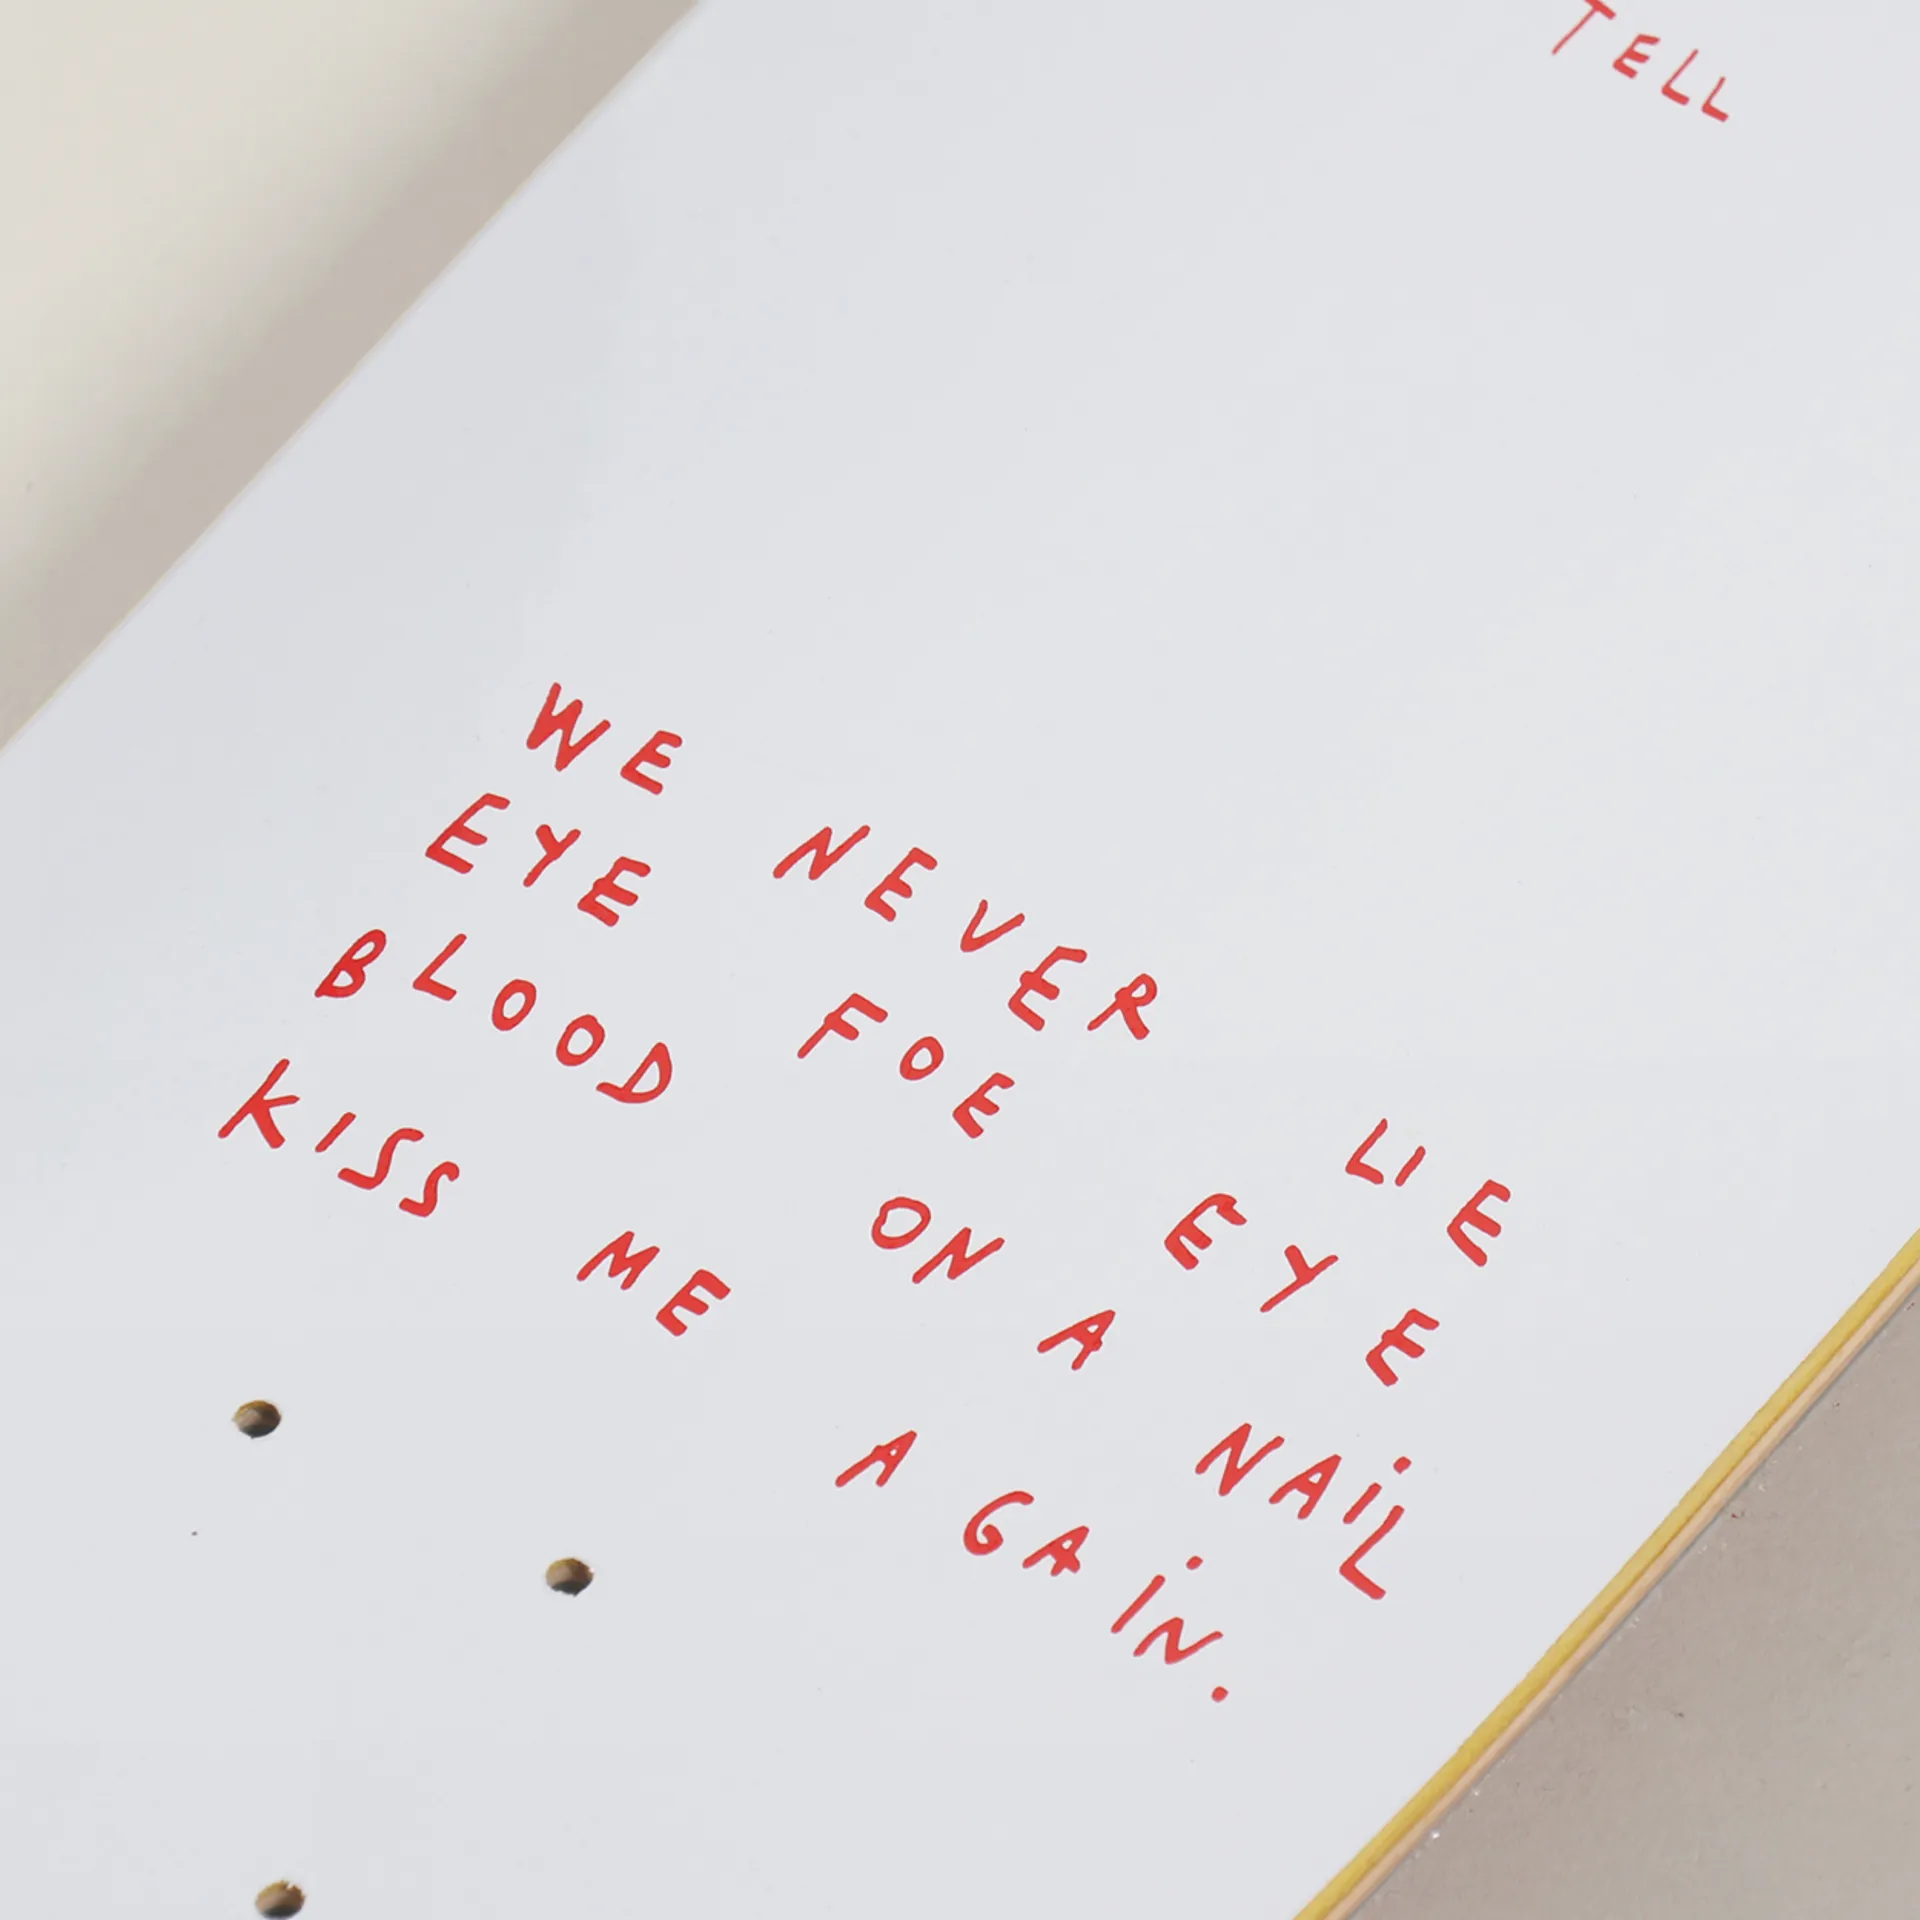 TELL
WE NEVER LIE
EYE FOE EYE
BLOOD ON A NAIL
KISS ME AGAIN.